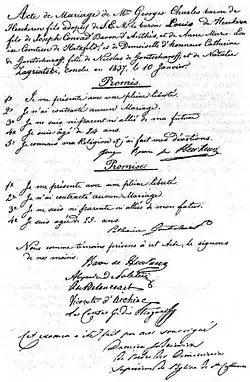 Acte de Mariage de Mr Georges Charles baron de
Heeckeren fils adoptif de S.E. Mr le baron Louis de Heeckeren
fils de Joseph Conrad Baron d'Anthès, et de Anne Marie Lou
ise Comtesse de Hatzfeldt et de Demoiselle d'honneur Catherine
de Gontcharoff, fille de Nicolas de Gontcharoff et de Natalie
Zagriatski, conclu en 1837, le 10 Janvier
Promis.
1° Je me présente avec une pleine liberté.
2° Je n'ai contracté aucun Mariage.
3° Je ne suis ni parent ni allié de ma future
4° Je suis âgé de 24 ans.
5° Je connais ma Religion et j'ai fait mes dévotions.
Georges Baron de Heeckeren
Promise
1° Je me présente avec une pleine liberté
2° Je n'ai contracté aucun Mariage
3° Je ne suis ni parente ni alliée de mon futur.
4° Je suis âgée
Catherine Gontcharoff
Nous comme témoins présens à cet Acte, le signons
de nos mains.
Baron de Heeckeren
Vicomte d'Archiac
Le Comte G. de Strogonoff
Cet examen a été fait par moi soussigné
Damien
de l'ordre des Dominicains
Supérieur de l'Eglise de Ste Catherine